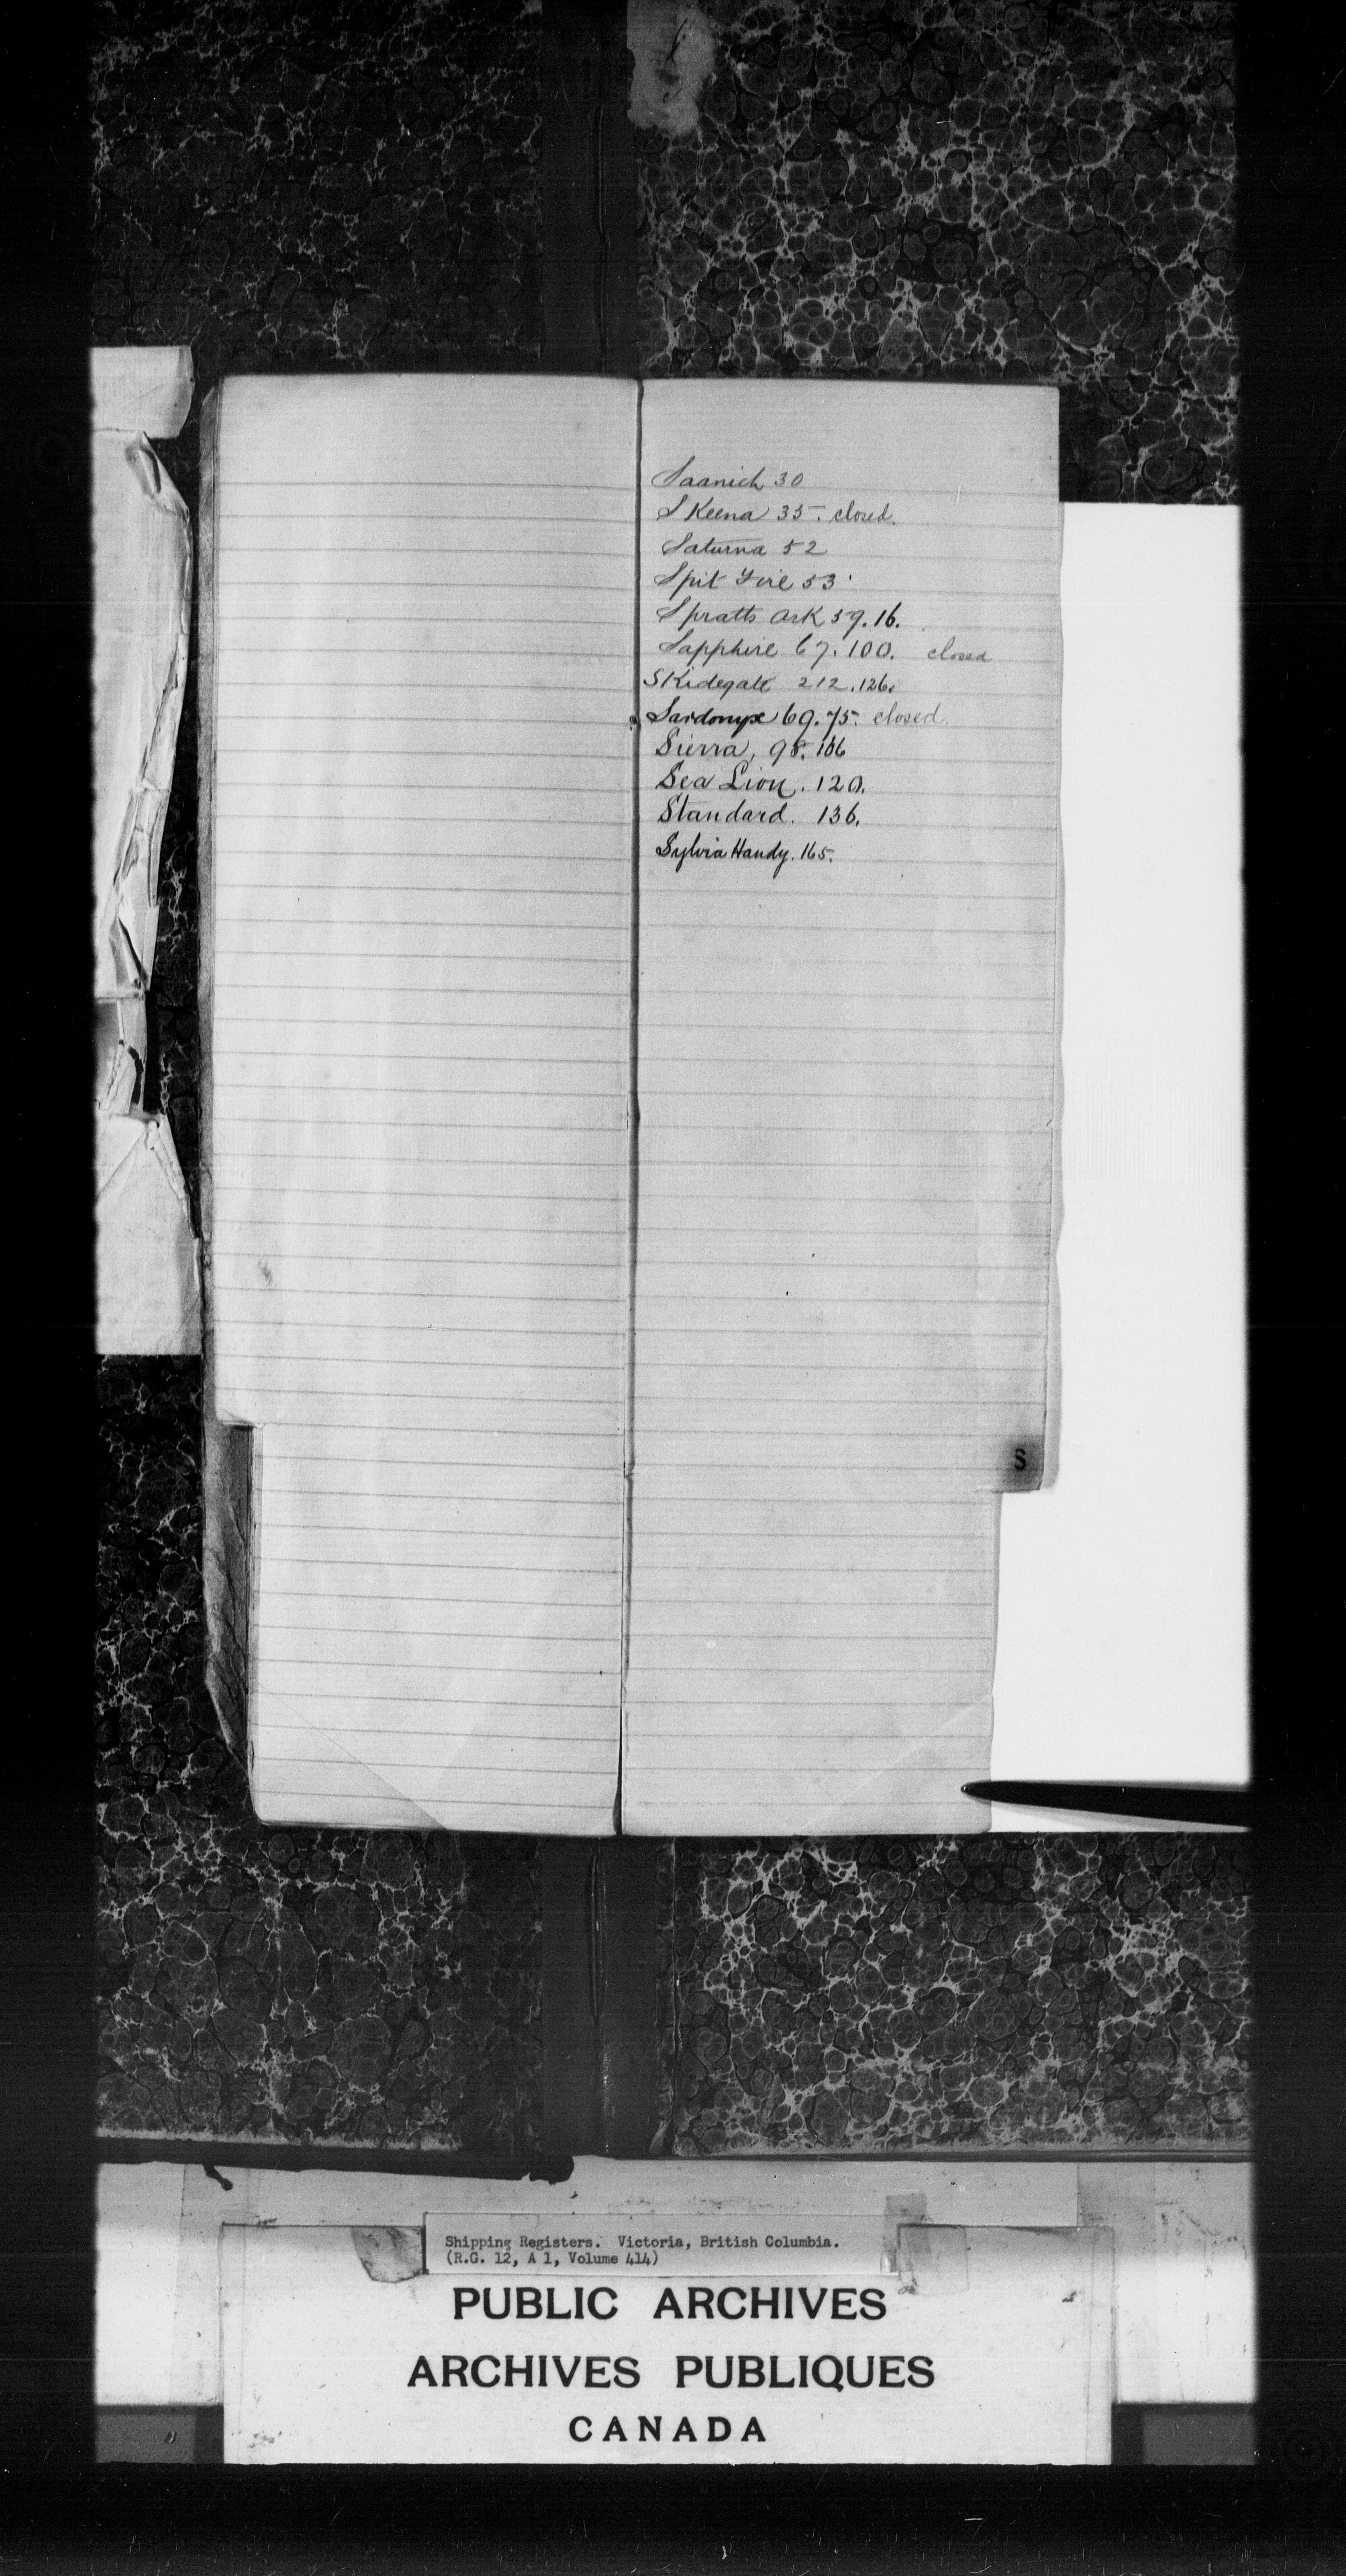 Saanich 30
SKeena 35. closed.
Saturna 52
Spit Fire 53
Spratts Ark 59.16.
Sapphire 67.100. closed
SKidegate 212.126.
Sardonyx 69.75. closed.
Sierra, 98.106
Sea Lion. 120.
Standard. 136.
Sylvia Handy. 165.
S
Shipping Registers. Victoria, British Columbia.
(R.G. 12, A 1, Volume 414)
PUBLIC ARCHIVES
ARCHIVES PUBLIQUES
CANADA